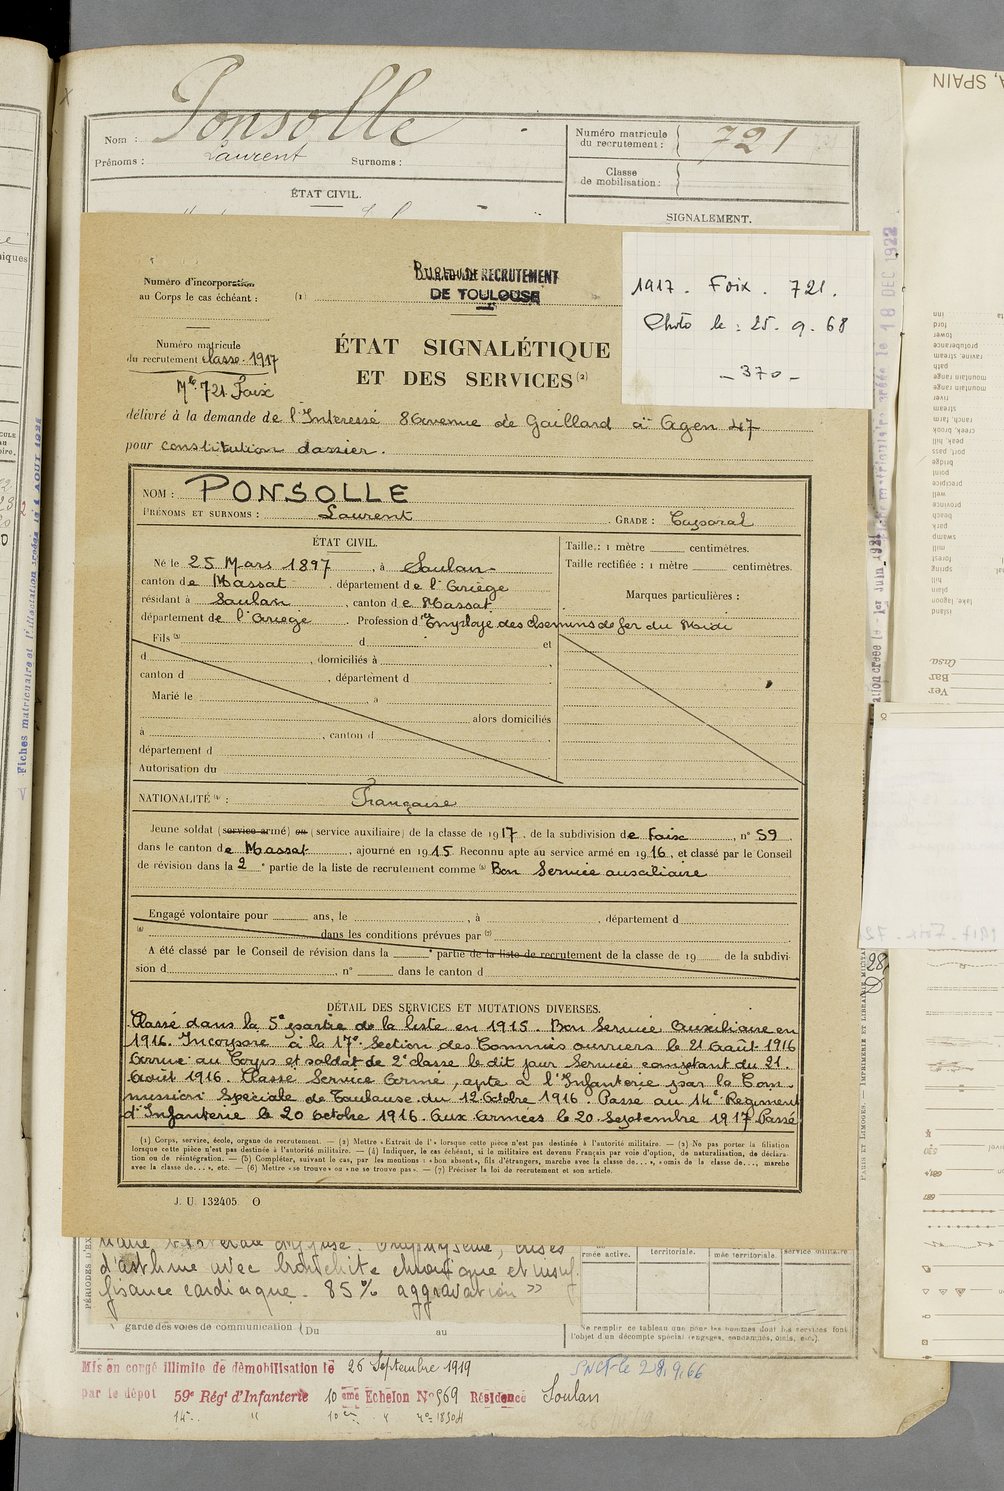 Nom : Ponsolle
Prénoms : Laurent Surnoms :
Numéro matricule
du recrutement : 721
Classe
de mobilisation :
ÉTAT CIVIL.
SIGNALEMENT.
Numéro d'incorporation
au Corps le cas échéant :
(1)
BUREAU DE RECRUTEMENT
DE TOULOUSE
1917. Foix. 721.
Photo le : 25. 9. 68
- 370 -
Numéro matricule
du recrutement classe 1917
Mle 721 Foix
ÉTAT SIGNALÉTIQUE
ET DES SERVICES (2)
délivré à la demande de l'Interessé 8 Avenue de Gaillard à Agen 47
pour constitution dossier.
NOM : PONSOLLE
PRÉNOMS ET SURNOMS : Laurent GRADE : Caporal
ÉTAT CIVIL.
Né le 25 Mars 1897, à Soulan
canton de Massat département de l'Ariège
résidant à Soulan, canton de Massat
département de l'Ariège Profession d'Employé des chemins de fer du Midi
Taille : 1 mètre centimètres.
Taille rectifiée : 1 mètre centimètres.
Marques particulières :
Fils (3) d et
d , domiciliés à
canton d , département d
Marié le à
alors domiciliés
à , canton d
département d
Autorisation du
NATIONALITÉ (4) : Française
Jeune soldat (service armé) ou (service auxiliaire) de la classe de 1917, de la subdivision de Foix, n° 59
dans le canton de Massat, ajourné en 1915 Reconnu apte au service armé en 1916, et classé par le Conseil
de révision dans la 2e partie de la liste de recrutement comme (5) Bon Service auxiliaire
Engagé volontaire pour ans, le , à , département d
(6) dans les conditions prévues par (7)
A été classé par le Conseil de révision dans la e partie de la liste de recrutement de la classe de 19 de la subdivi-
sion d , n° dans le canton d
DÉTAIL DES SERVICES ET MUTATIONS DIVERSES.
Classé dans la 5e partie de la liste en 1915. Bon Service Auxiliaire en
1916. Incorporé à la 17e Section des Commis ouvriers le 21 Août 1916
Arrivé au Corps et soldat de 2e classe le dit jour Service comptant du 21
Août 1916. Classé Service Armé, apte à l'Infanterie par la Com-
mission Spéciale de Toulouse du 12 Octobre 1916. Passé au 14e Régiment
d'Infanterie le 20 Octobre 1916. Aux Armées le 20 Septembre 1917 Passé
(1) Corps, service, école, organe de recrutement. — (2) Mettre « Extrait de l' » lorsque cette pièce n'est pas destinée à l'autorité militaire. — (3) Ne pas porter la filiation
lorsque cette pièce n'est pas destinée à l'autorité militaire. — (4) Indiquer, le cas échéant, si le militaire est devenu Français par voie d'option, de naturalisation, de déclara-
tion ou de réintégration. — (5) Compléter, suivant le cas, par les mentions : « bon absent », fils d'étrangers, marche avec la classe de..., « omis de la classe de..., marche
avec la classe de... », etc. — (6) Mettre « se trouve » ou « ne se trouve pas ». — (7) Préciser la loi de recrutement et son article.
J. U. 132405. O
d'asthme avec bronchite chronique et insuf-
fisance cardiaque. 85 % aggravation »
armée active. territoriale. mée territoriale. service militaire
garde des voies de communication (Du au
Ne remplir ce tableau que pour les hommes dont les services font
l'objet d'un décompte spécial (engagés, condamnés, omis, etc.).
Mis en congé illimité de démobilisation le 26 Septembre 1919
par le dépôt 59e Régt d'Infanterie 10 ème Echelon N° 969 Résidence Soulan
SNCF le 28.9.66
18 DEC 1922
, SPAIN